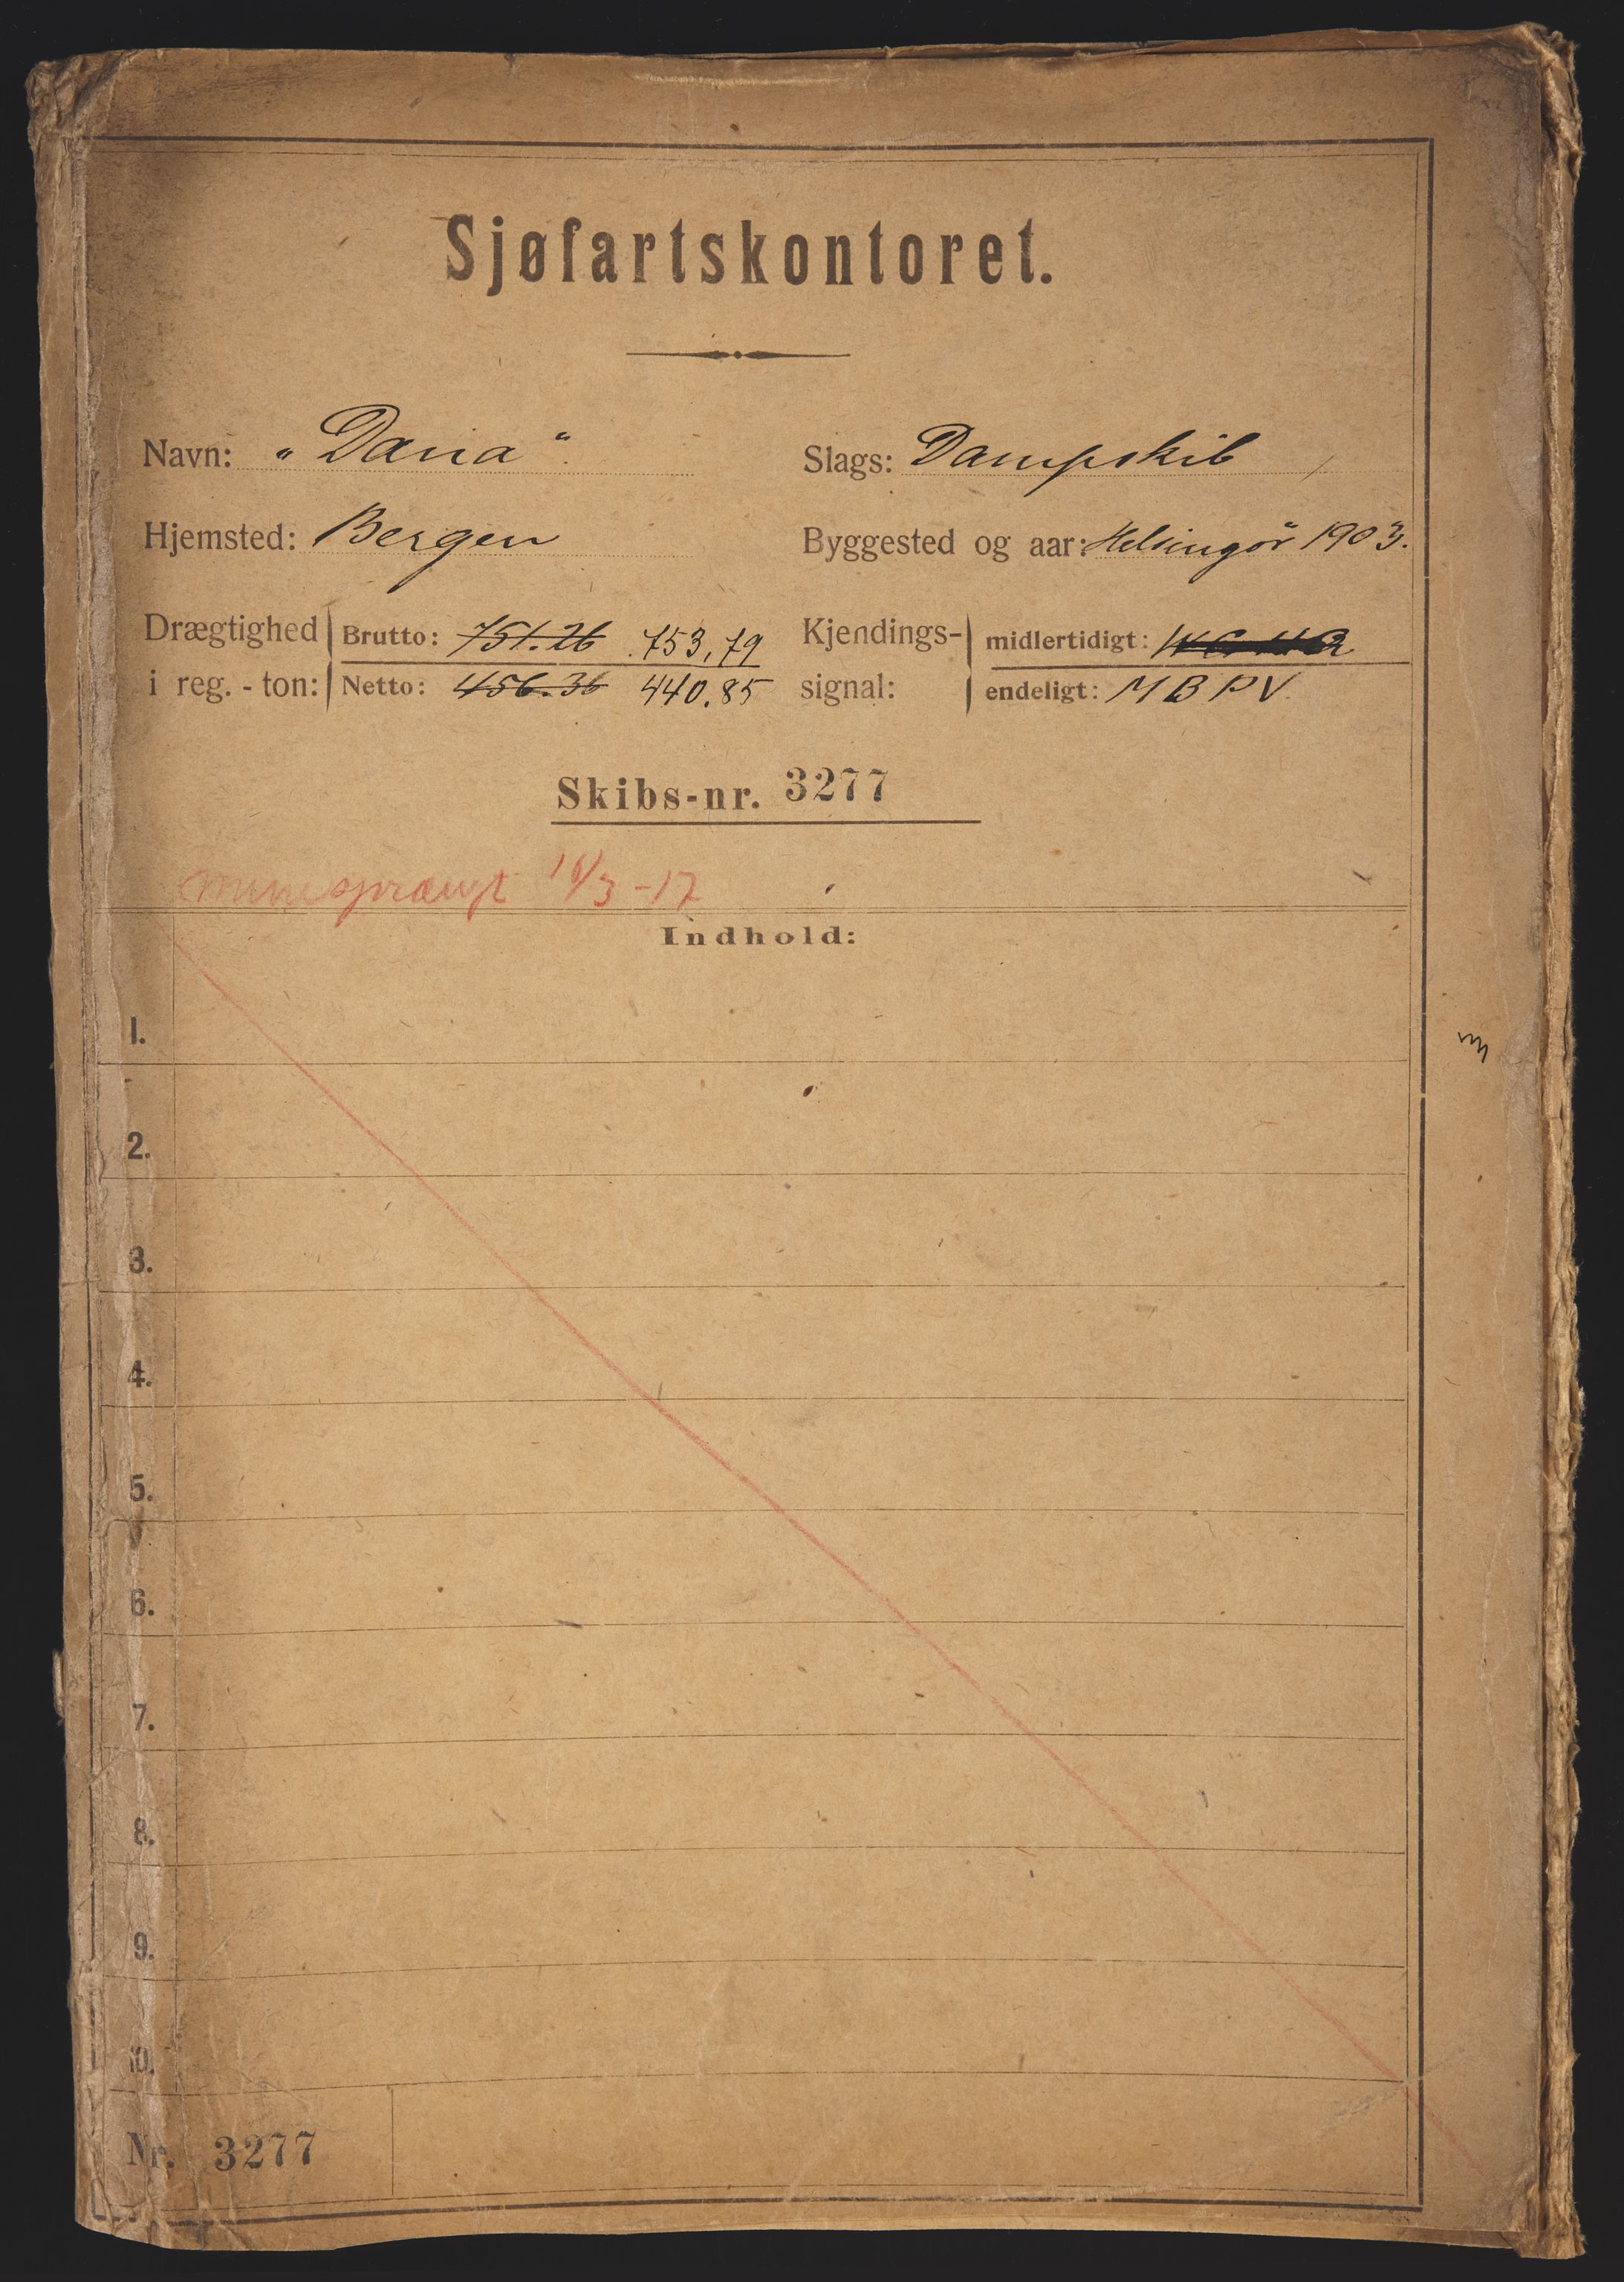 Sjøfartskontoret.
Navn: „Dana“. Slags: Dampskib
Hjemsted: Bergen Byggested og aar: Helsingör 1903.
Drægtighed Brutto: 751.26 753,79 Kjendings- midlertidigt:
i reg.-ton: Netto: 456.36 440.85 signal: endeligt: MBPV.
Skibs-nr. 3277
minesprængt 16/3-17
Indhold:
1.
2.
3.
4.
5.
6.
7.
8.
9.
10.
Nr. 3277